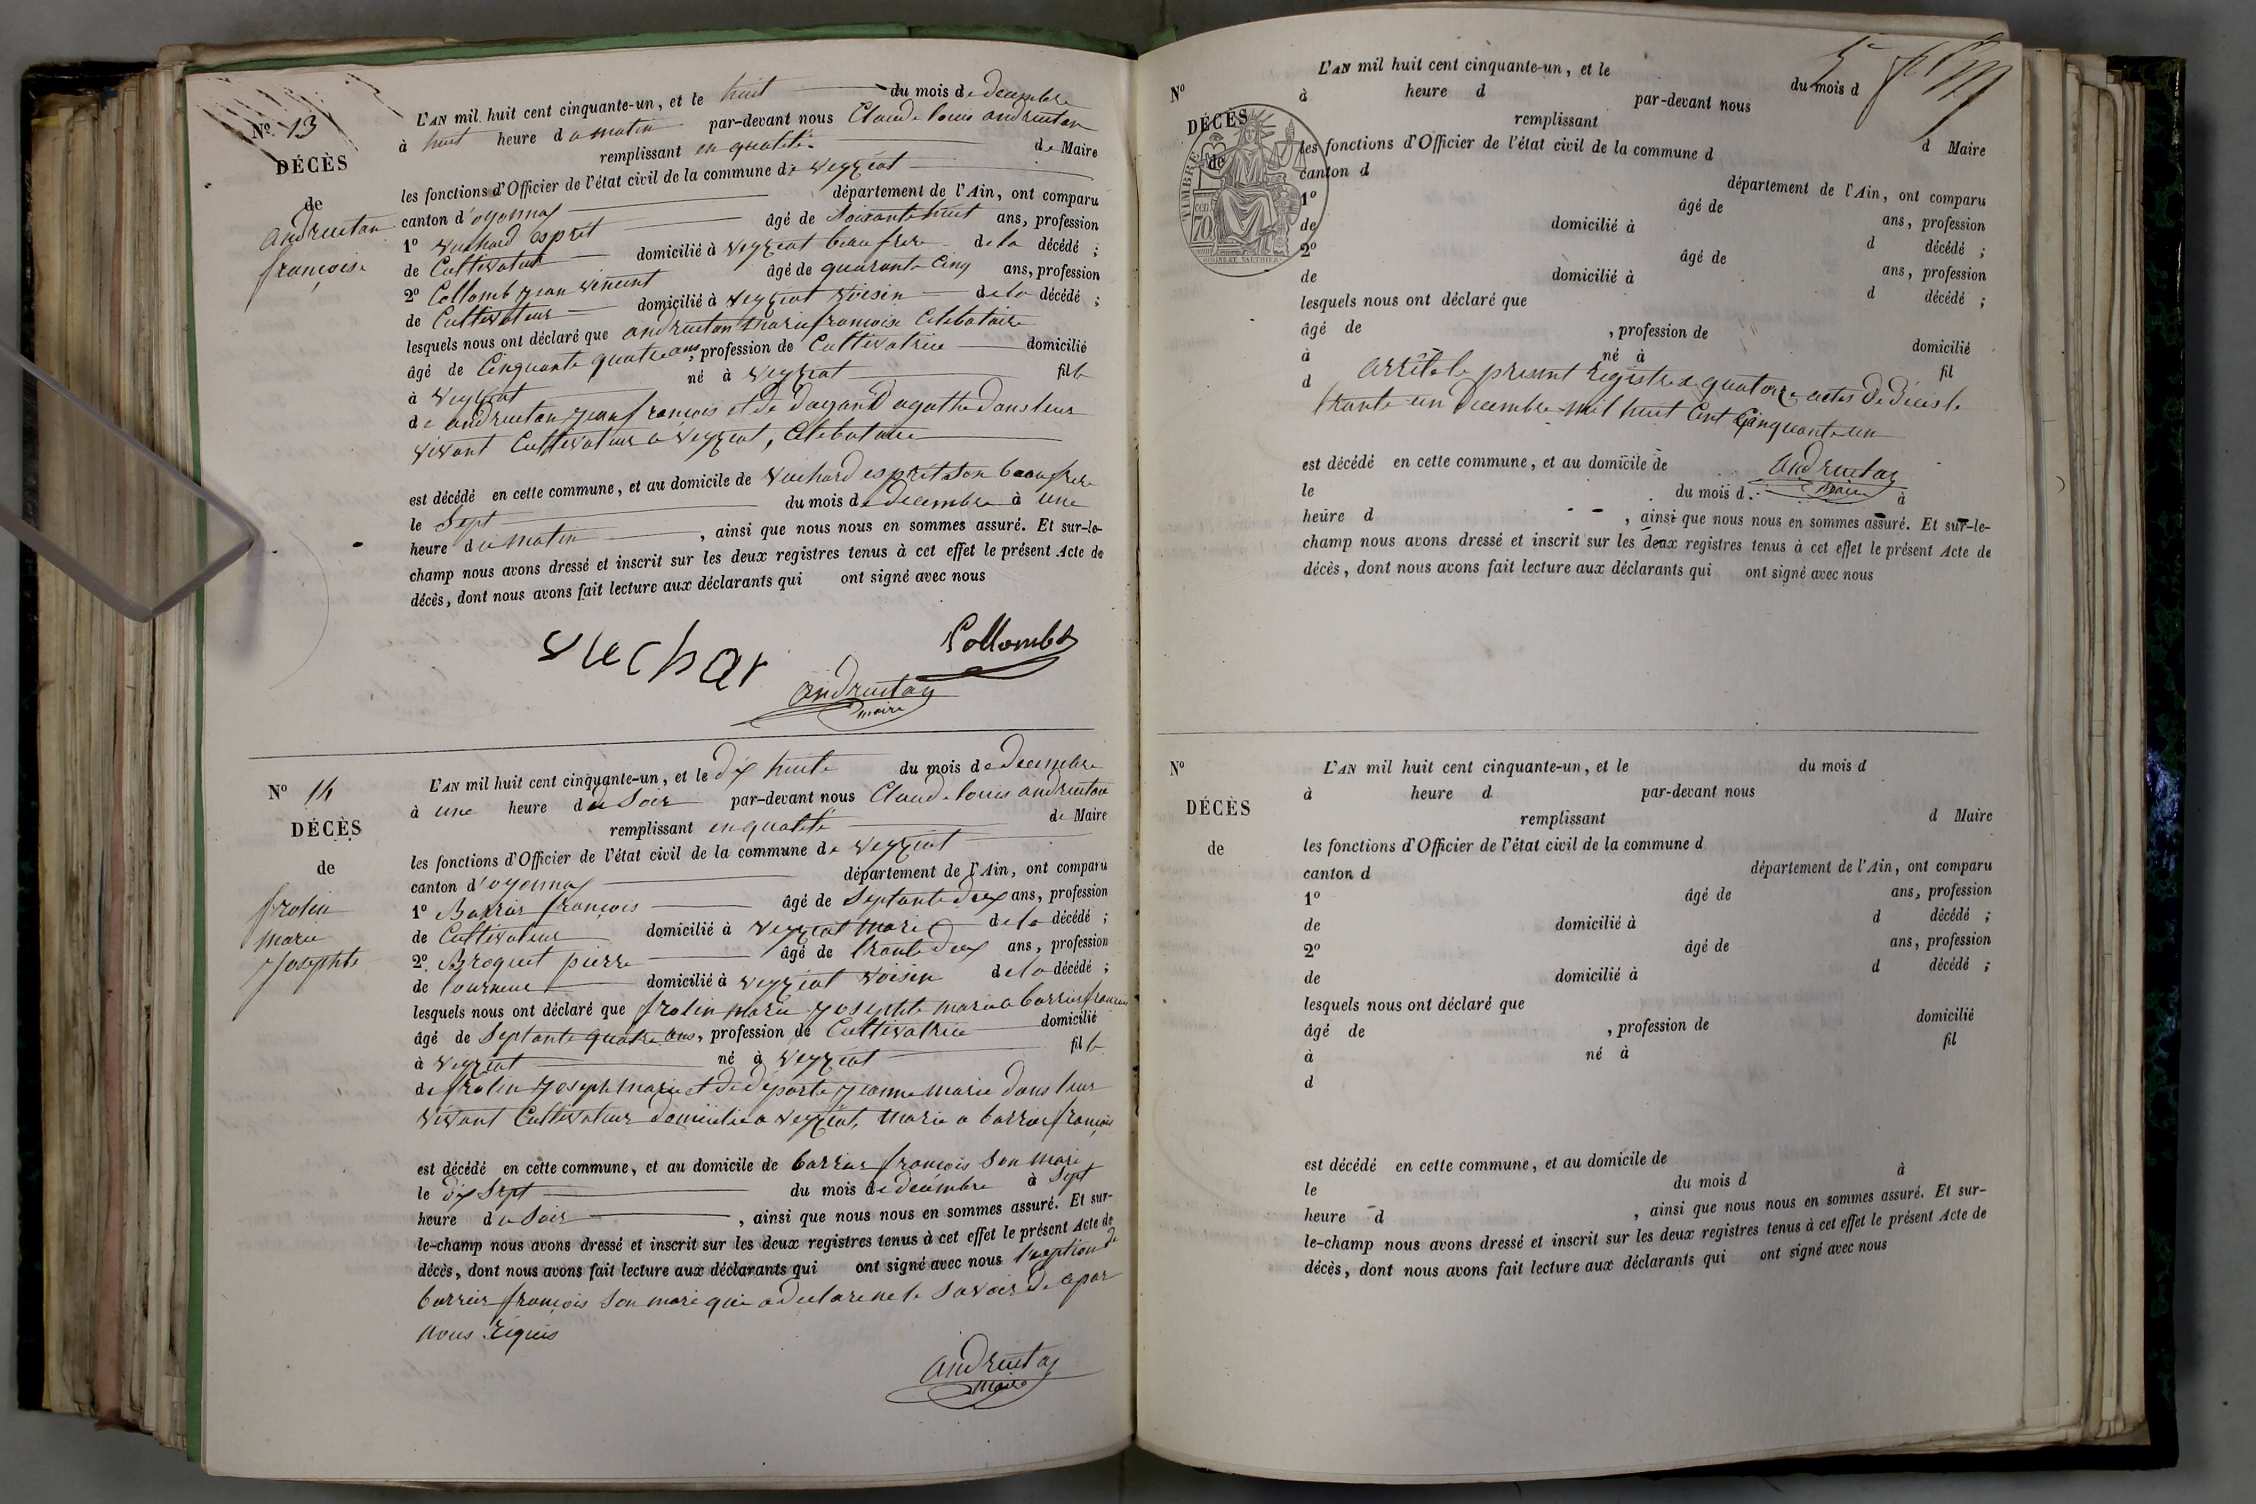 No. 13
DÉCÈS
de
andruitan
françoise
L'AN mil huit cent cinquante-un, et le huit du mois de decembre
à huit heure du matin par-devant nous Claude louis andruitan
remplissant en qualité de Maire
les fonctions d'Officier de l'état civil de la commune de veyziat
canton d'oyonnax département de l'Ain, ont comparu
1º vuchard esprit âgé de soixante huit ans, profession
de Cultivateur domicilié à veyziat beau frere de la décédé ;
2º Collomb jean vincent âgé de quarante cinq ans, profession
de Cultivateur domicilié à veyziat voisin de la décédé ;
lesquels nous ont déclaré que andruitan marie francoise Celebataire
âgé de Cinquante quatre ans, profession de Cultivatrice domicilié
à veyziat né à veyziat fille
de andruitan jean françois et de dagand agathe dans leur
vivant Cultivateur a veyziat, Celebataire
est décédé en cette commune, et au domicile de vuchard esprit son beau frere
le Sept du mois de decembre à une
heure du matin , ainsi que nous nous en sommes assuré. Et sur-le-
champ nous avons dressé et inscrit sur les deux registres tenus à cet effet le présent Acte de
décès, dont nous avons fait lecture aux déclarants qui ont signé avec nous
vuchar
Collomb
andruitan
maire
Nº 14
DÉCÈS
de
frolin
marie
Josephte
L'AN mil huit cent cinquante-un, et le dix huite du mois de decembre
à une heure du Soir par-devant nous Claude louis andruitan
remplissant en qualité de Maire
les fonctions d'Officier de l'état civil de la commune de veyziat
canton d'oyonnax département de l'Ain, ont comparu
1º Barrier françois âgé de Septante deux ans, profession
de Cultivateur domicilié à veyziat mari de la décédé ;
2º Broquet pierre âgé de trante deux ans, profession
de tourneur domicilié à veyziat voisin de la décédé ;
lesquels nous ont déclaré que frolin marie josephte marie a barrier francois
âgé de Septante quatre ans, profession de Cultivatrice domicilié
à veyziat né à veyziat fille
de frolin joseph marie et de deporte jeanne marie dans leur
vivant Cultivateur domicilie a veyziat, marie a barrier françois
est décédé en cette commune, et au domicile de barrier françois son mari
le dix Sept du mois de decembre à Sept
heure du Soir , ainsi que nous nous en sommes assuré. Et sur-
le-champ nous avons dressé et inscrit sur les deux registres tenus à cet effet le présent Acte de
décès, dont nous avons fait lecture aux déclarants qui ont signé avec nous l'exeption de
barrier françois son mari qui a declare ne le savoir de ce par
nous requis
andruitan
maire
Nº
DÉCÈS
de
TIMBRE
70
L'AN mil huit cent cinquante-un, et le du mois d
à heure d par-devant nous
remplissant d Maire
les fonctions d'Officier de l'état civil de la commune d
canton d département de l'Ain, ont comparu
1º âgé de ans, profession
de domicilié à d décédé ;
2º âgé de ans, profession
de domicilié à d décédé ;
lesquels nous ont déclaré que
âgé de , profession de domicilié
à né à fil
d arrêté le present registre de quatorze actes de décès le
trante un decembre mil huit Cent Cinquante un
est décédé en cette commune, et au domicile de
andruitan
maire
le du mois d à
heure d , ainsi que nous nous en sommes assuré. Et sur-le-
champ nous avons dressé et inscrit sur les deux registres tenus à cet effet le présent Acte de
décès, dont nous avons fait lecture aux déclarants qui ont signé avec nous
Nº
DÉCÈS
de
L'AN mil huit cent cinquante-un, et le du mois d
à heure d par-devant nous
remplissant d Maire
les fonctions d'Officier de l'état civil de la commune d
canton d département de l'Ain, ont comparu
1º âgé de ans, profession
de domicilié à d décédé ;
2º âgé de ans, profession
de domicilié à d décédé ;
lesquels nous ont déclaré que
âgé de , profession de domicilié
à né à fil
d
est décédé en cette commune, et au domicile de
le du mois d à
heure d , ainsi que nous nous en sommes assuré. Et sur-
le-champ nous avons dressé et inscrit sur les deux registres tenus à cet effet le présent Acte de
décès, dont nous avons fait lecture aux déclarants qui ont signé avec nous